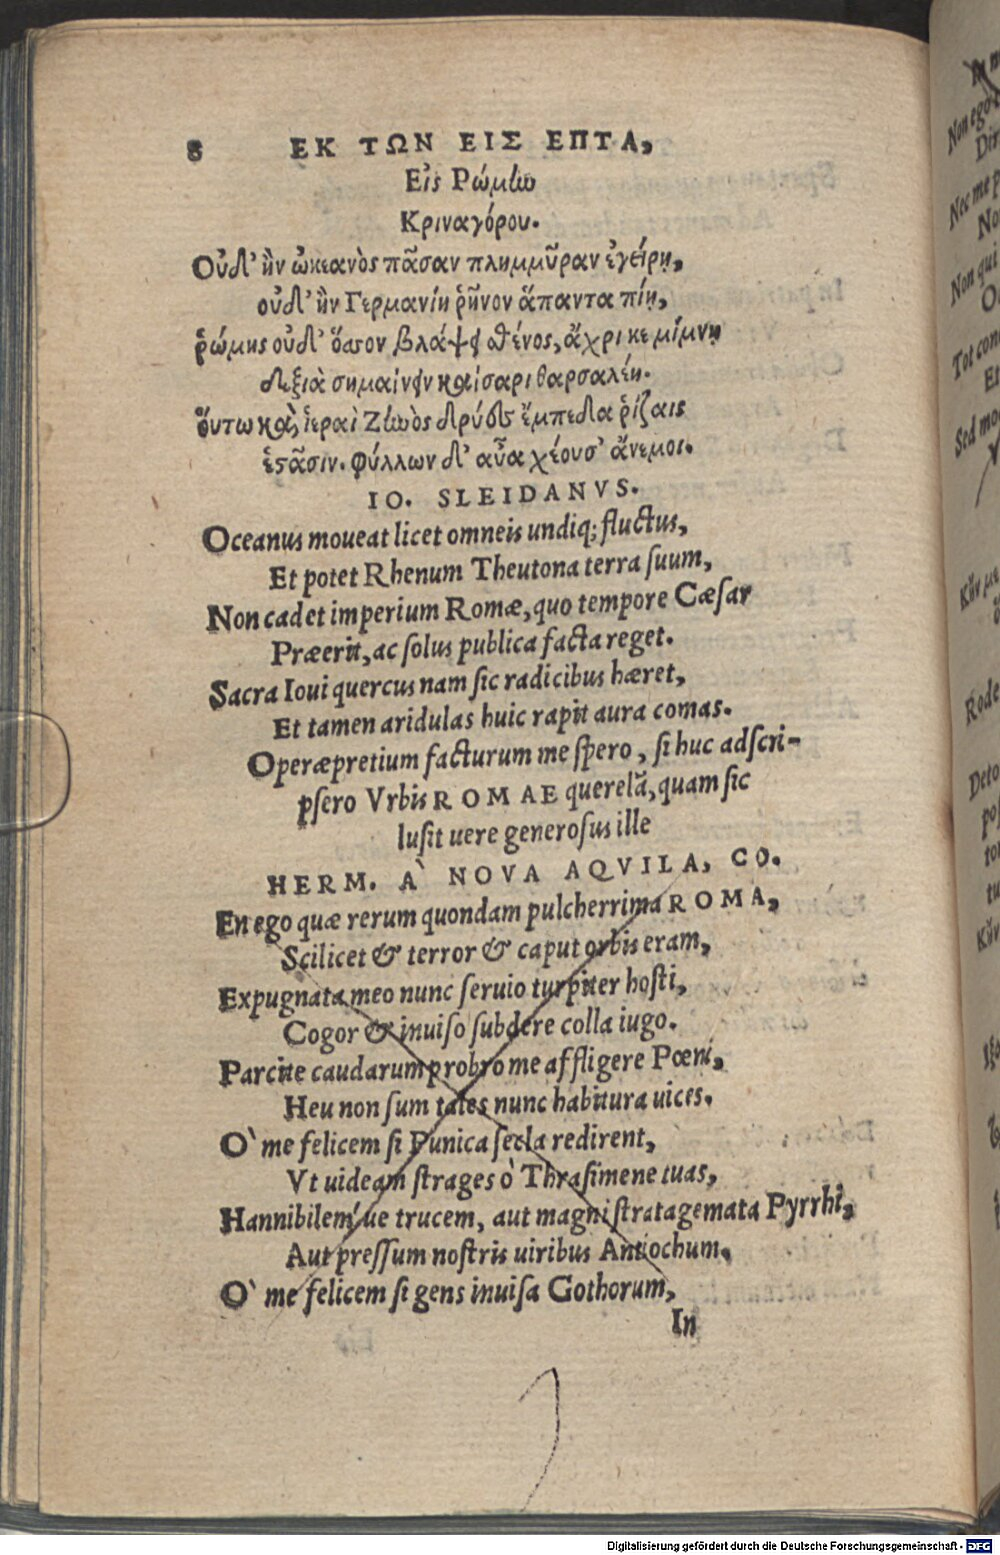 8 ΕΚ ΤΩΝ ΕΙΣ ΕΠΤΑ,
Εἰς Ῥώμην
Κριναγόρου.
Οὐδ' ἢν ὠκεανὸς πᾶσαν πλημμῦραν ἐγείρῃ,
οὐδ' ἢν Γερμανίη ῥῆνον ἅπαντα πίῃ,
ῥώμης οὐδ' ὅσσον βλάψει σθένος, ἄχρι κε μίμνῃ
δεξιὰ σημαίνειν καίσαρι θαρσαλέη.
ὅυτω καὶ ἱεραὶ Ζηνὸς δρύες ἔμπεδα ῥίζαις
ἑστᾶσιν. φύλλων δ' αὖα χέουσ' ἄνεμοι.
IO. SLEIDANVS.
Oceanus moueat licet omneis undiq; fluctus,
Et potet Rhenum Theutona terra suum,
Non cadet imperium Romæ, quo tempore Cæsar
Præerit, ac solus publica facta reget.
Sacra Ioui quercus nam sic radicibus hæret,
Et tamen aridulas huic rapit aura comas.
Operæpretium facturum me spero, si huc adscri-
psero Vrbis ROMAE querelã, quam sic
lusit uere generosus ille
HERM. A` NOVA AQVILA, CO.
En ego quæ rerum quondam pulcherrima ROMA,
Scilicet & terror & caput orbis eram,
Expugnata meo nunc seruio turpiter hosti,
Cogor & inuiso subdere colla iugo.
Parcite caudarum probro me affligere Pœni,
Heu non sum tales nunc habitura uices.
O` me felicem si Punica secla redirent,
Vt uideam strages ò Thrasimene tuas,
Hannibilem´ue trucem, aut magni stratagemata Pyrrhi,
Aut pressum nostris uiribus Antiochum.
O` me felicem si gens inuisa Gothorum,
In
Digitalisierung gefördert durch die Deutsche Forschungsgemeinschaft - DFG